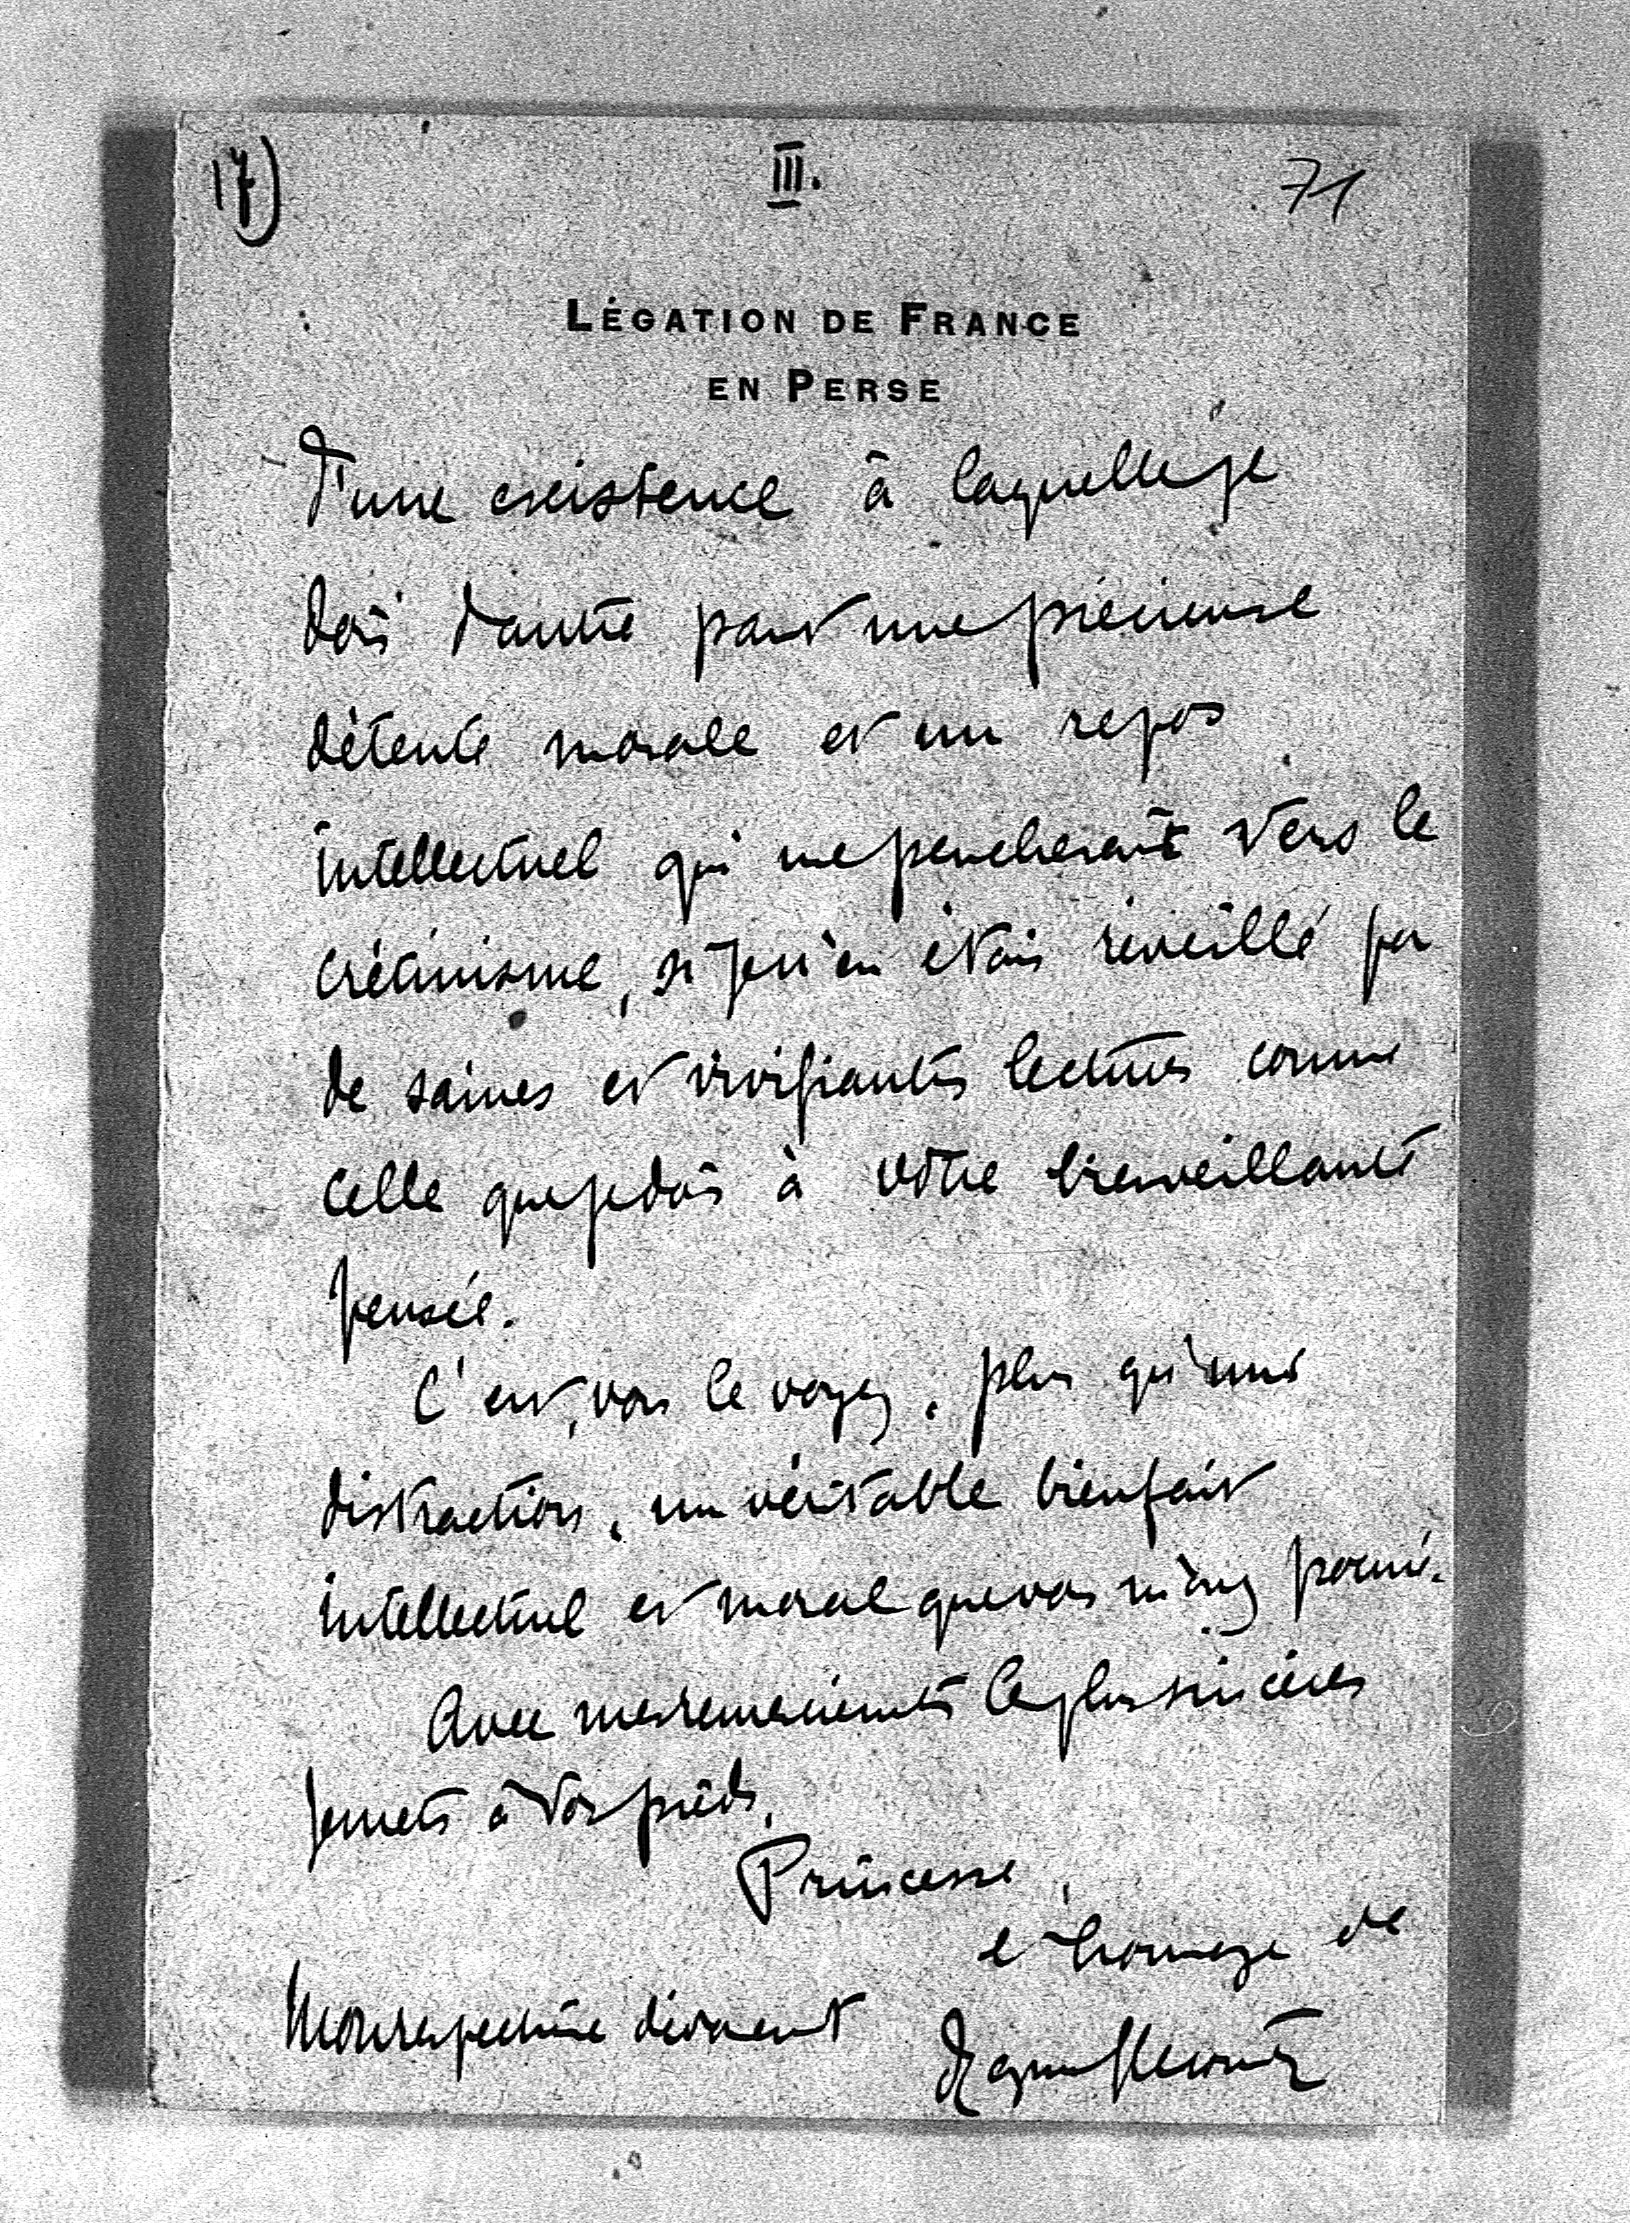 17)
III.
71
LÉGATION DE FRANCE
EN PERSE
d'une existence à laquelle je
dois d'autre part une précieuse
détente morale et un repos
intellectuel qui me pencherait vers le
crétinisme, si je n'en étais réveillé par
de saines et vivifiantes lectures comme
celle que je dois à votre bienveillante
pensée.
C'est, vous le voyez, plus qu'une
distraction, un véritable bienfait
intellectuel et moral que vous m'avez
Avec mes remerciements les plus sincères
je mets à vos pieds,
Princesse,
l'hommage de
mon respectueux dévouement